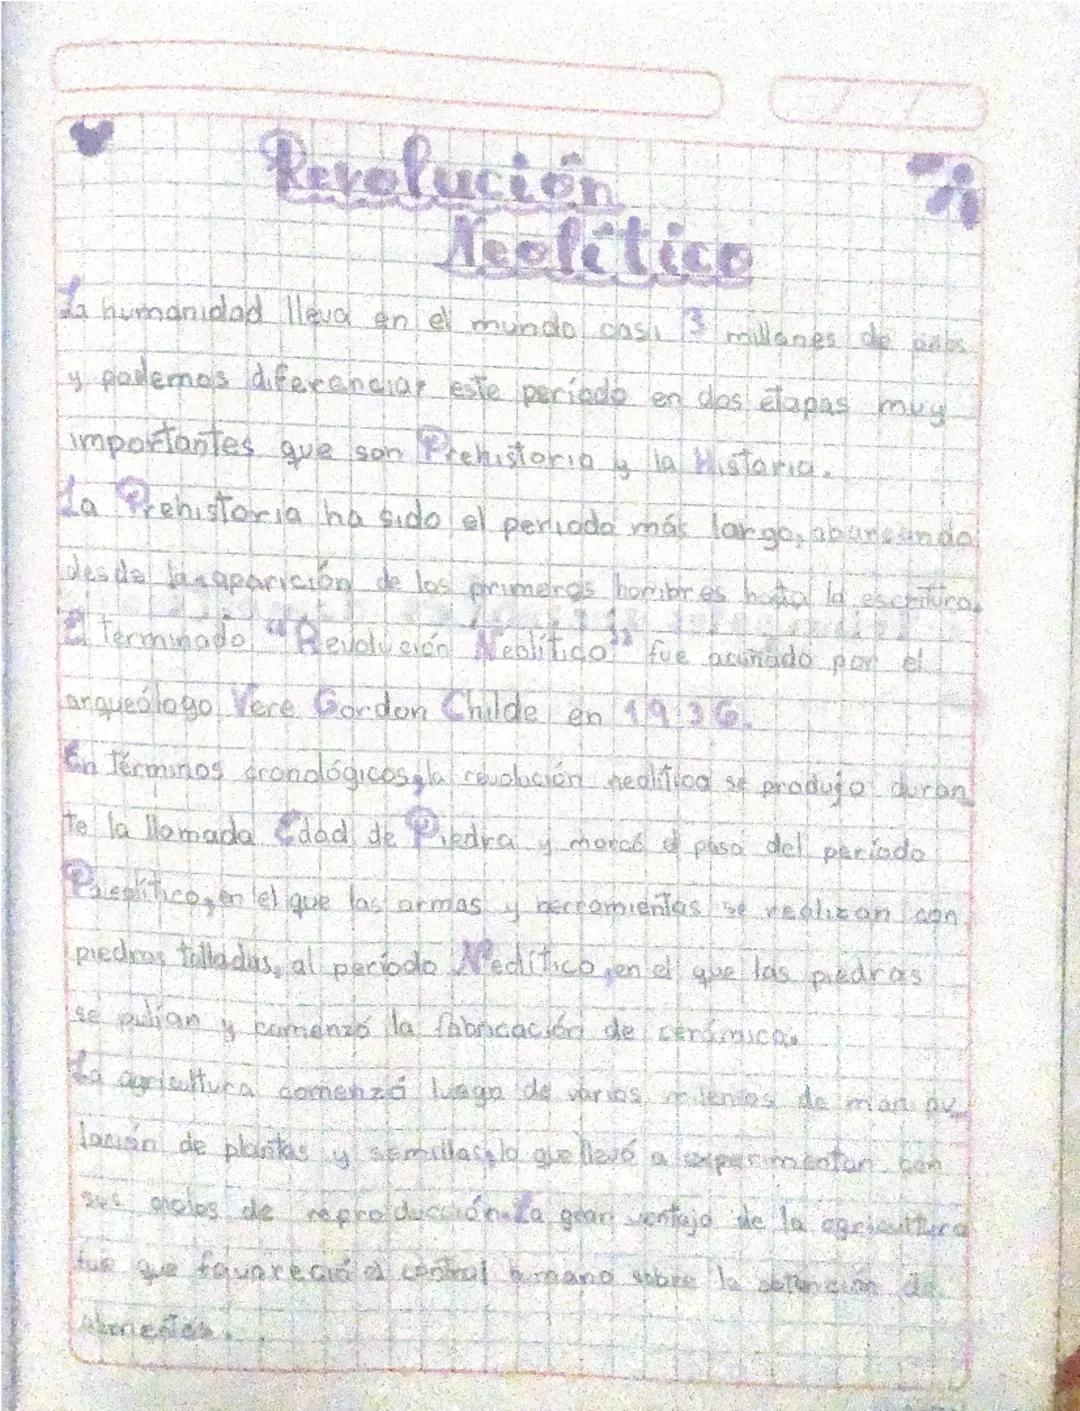 Revolución
Neolítico
La humanidad lleva en el mundo casi 3 millones de años
y podemos diferenciar este período en dos etapas muy
importantes que son Prehistoria y la Historia.
La Prehistoria ha sido el periodo más largo, abarcando
desde la aparición de los primeros hombres hasta la escritura.
El Terminado "Revolución Neolítico" fue acuñado por el
arqueólogo Vere Gordon Childe en 1936.
En Términos cronológicos, la revolución neolítica se produjo duran
te la llamada Edad de Piedra y marcó el paso del período
Paleolítico, en el que las armas y herramientas se realizan con
piedras talladas, al período Neolítico, en el que las piedras
se pulían y comenzó la fabricación de cerámica.
La agricultura comenzó luego de varios milenios de manipu
lación de plantas y semillas, lo que llevó a experimentan con
sus de reproducción. La gran ventaja de la agricultura
fue que favoreció el control humano sobre la obtención de
alimentos.